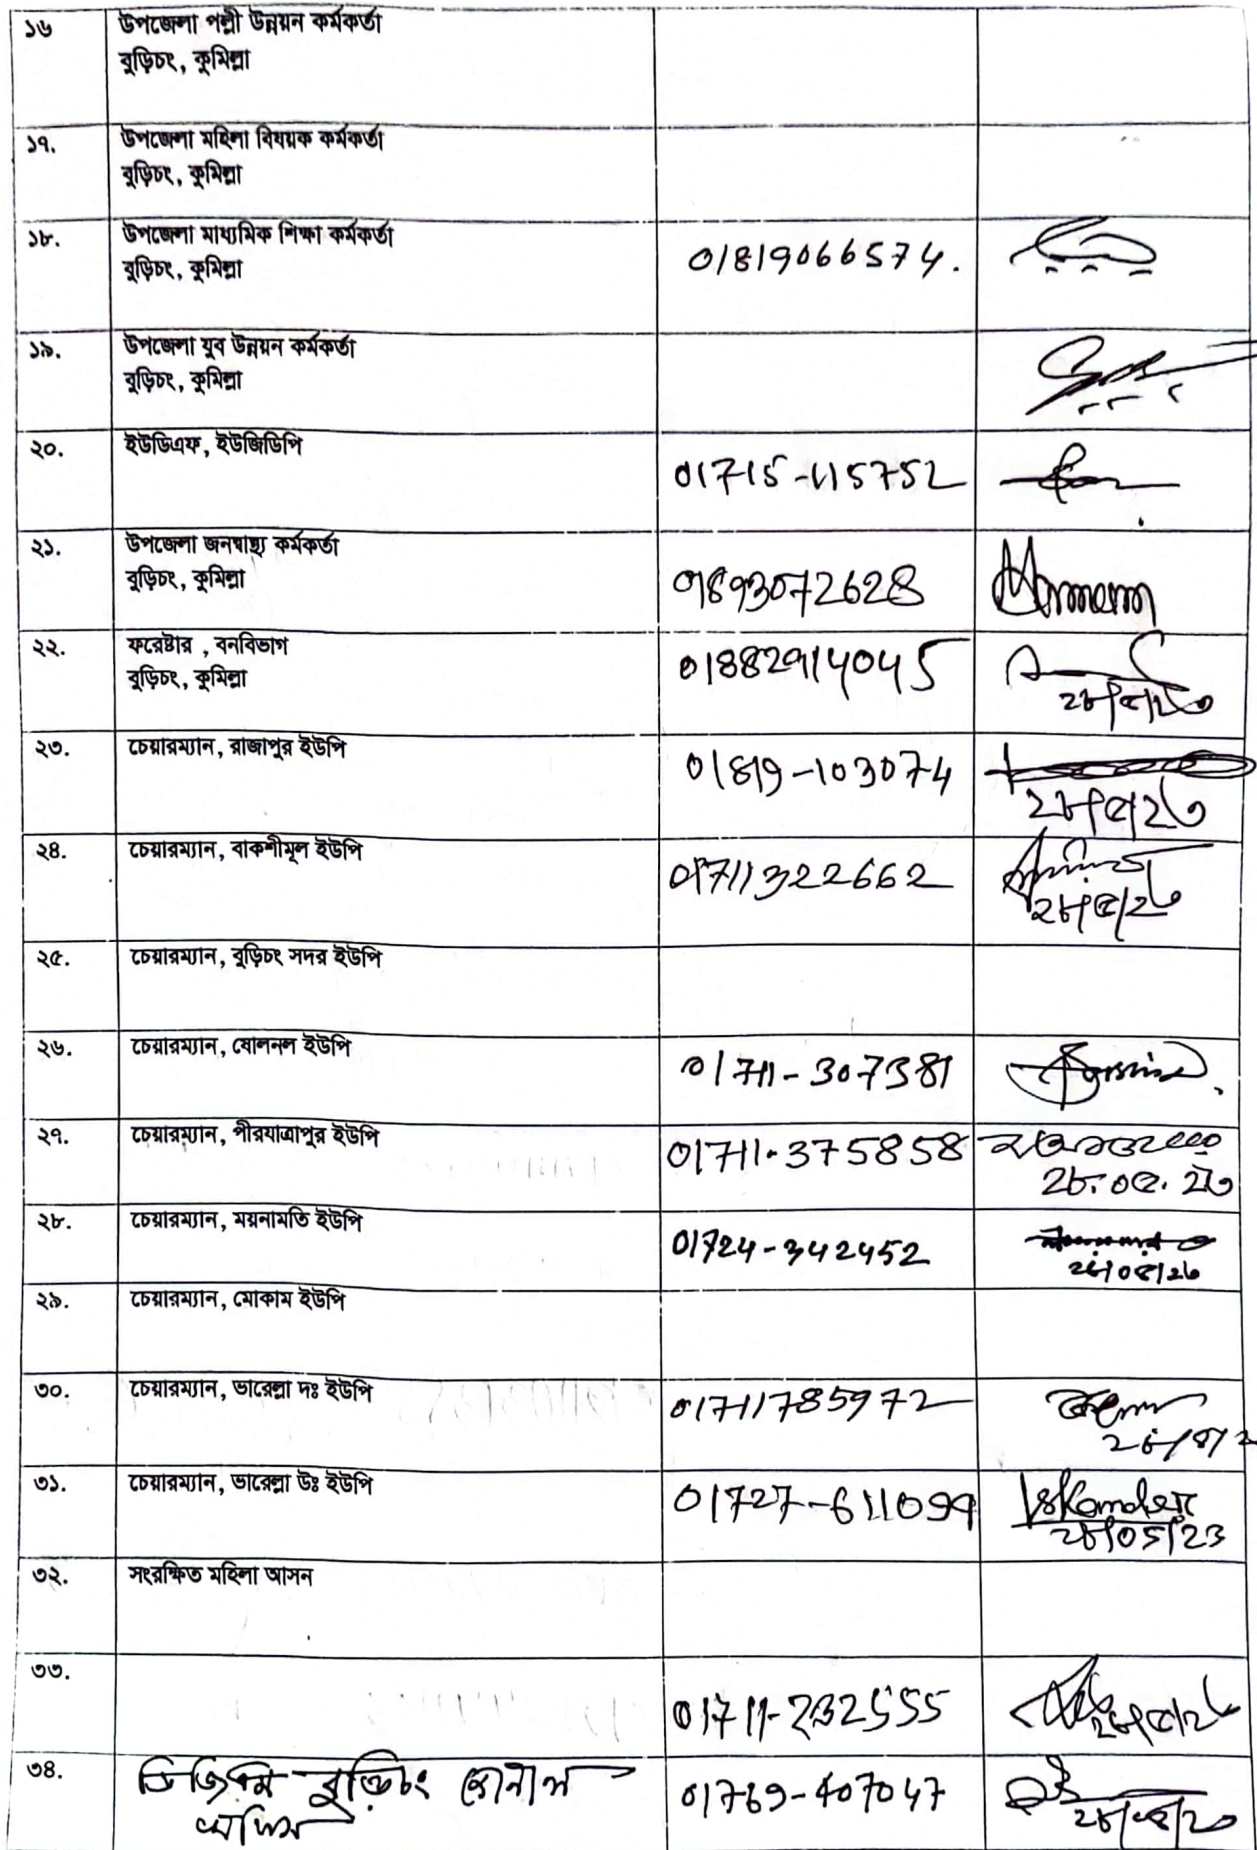 ১৬
উপজেলা পল্লী উন্নয়ন কর্মকর্তা
বুড়িচং, কুমিল্লা
১৭.
উপজেলা মহিলা বিষয়ক কর্মকর্তা
বুড়িচং, কুমিল্লা
১৮.
উপজেলা মাধ্যমিক শিক্ষা কর্মকর্তা
বুড়িচং, কুমিল্লা
01819066574.
১৯.
উপজেলা যুব উন্নয়ন কর্মকর্তা
বুড়িচং, কুমিল্লা
২০.
ইউডিএফ, ইউজিডিপি
01715-115752
২১.
উপজেলা জনস্বাস্থ্য কর্মকর্তা
বুড়িচং, কুমিল্লা
01893072628
২২.
ফরেষ্টার , বনবিভাগ
বুড়িচং, কুমিল্লা
01882914045
২৮/৫/২৩
২৩.
চেয়ারম্যান, রাজাপুর ইউপি
01819-103074
২৮/৫/২৩
২৪.
চেয়ারম্যান, বাকশীমূল ইউপি
01711322662
২৮/৫/২৩
২৫.
চেয়ারম্যান, বুড়িচং সদর ইউপি
২৬.
চেয়ারম্যান, ষোলনল ইউপি
01711-307381
২৭.
চেয়ারম্যান, পীরযাত্রাপুর ইউপি
01711-375858
২৮.০৫.২৩
২৮.
চেয়ারম্যান, ময়নামতি ইউপি
01724-342452
২৮/০৫/২৩
২৯.
চেয়ারম্যান, মোকাম ইউপি
৩০.
চেয়ারম্যান, ভারেল্লা দঃ ইউপি
01711785972
৩১.
চেয়ারম্যান, ভারেল্লা উঃ ইউপি
01727-611099
Iskander
28/05/23
৩২.
সংরক্ষিত মহিলা আসন
৩৩.
01711-232555
২৮/৫/২৩
৩৪.
ডিজিএম বুড়িচং জোনাল
অফিস
01769-407047
২৮/০৫/২৩